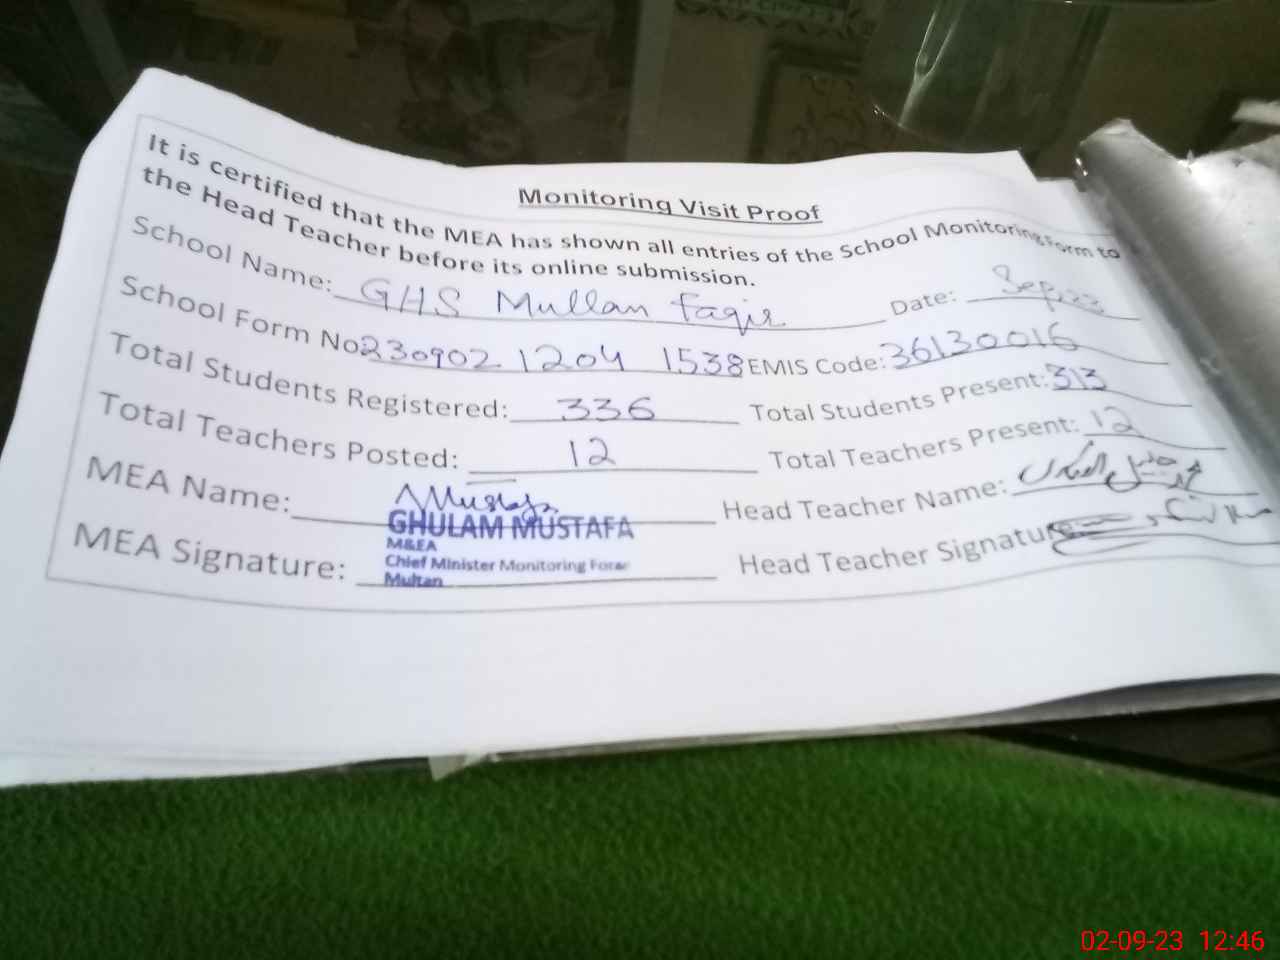 Monitoring Visit Proof
It is certified that the MEA has shown all entries of the School Monitoring Form to
the Head Teacher before its online submission.
School Name: GHS Mullan Faqir Date: Sep, 23
School Form No 230902 1204 1538 EMIS Code: 36130016
Total Students Registered: 336 Total Students Present: 313
Total Teachers Posted: 12 Total Teachers Present: 12
MEA Name: Mustafa Head Teacher Name:
GHULAM MUSTAFA
M&EA
Chief Minister Monitoring Force
Multan
MEA Signature: Head Teacher Signature
02-09-23 12:46